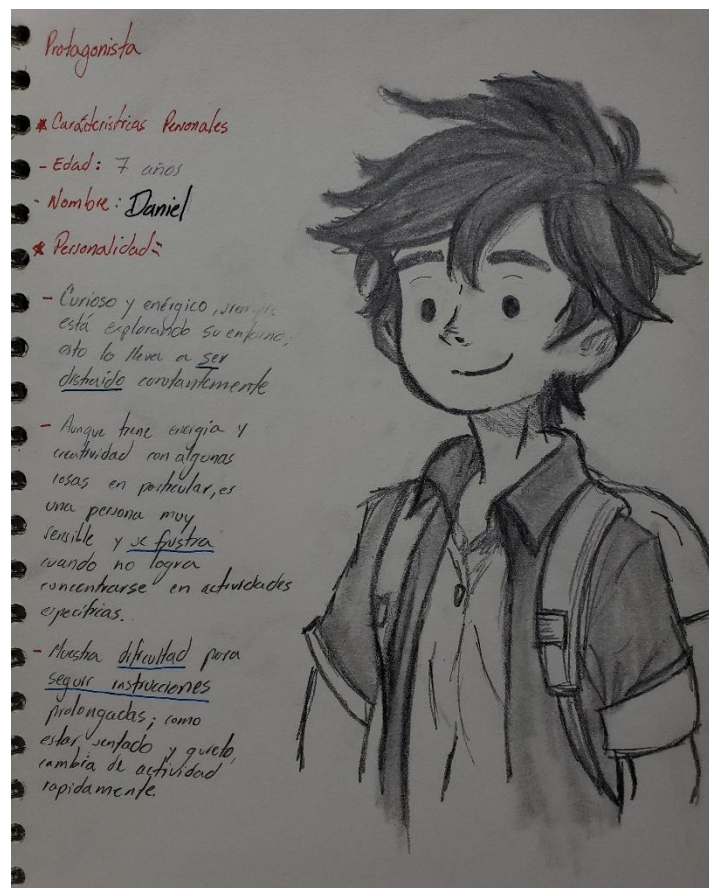 Protagonista
* Carácteristicas Personales
- Edad: 7 años
- Nombre: Daniel
* Personalidad:
- Curioso y enérgico, siempre
está explorando su entorno;
esto lo lleva a ser
distraido constantemente
- Aunque tiene energia y
creatividad con algunas
cosas en particular, es
una persona muy
sensible y se frustra
cuando no logra
concentrarse en actividades
especificas.
- Muestra dificultad para
seguir instrucciones
prolongadas; como
estar sentado y quieto,
cambia de actividad
rapidamente.